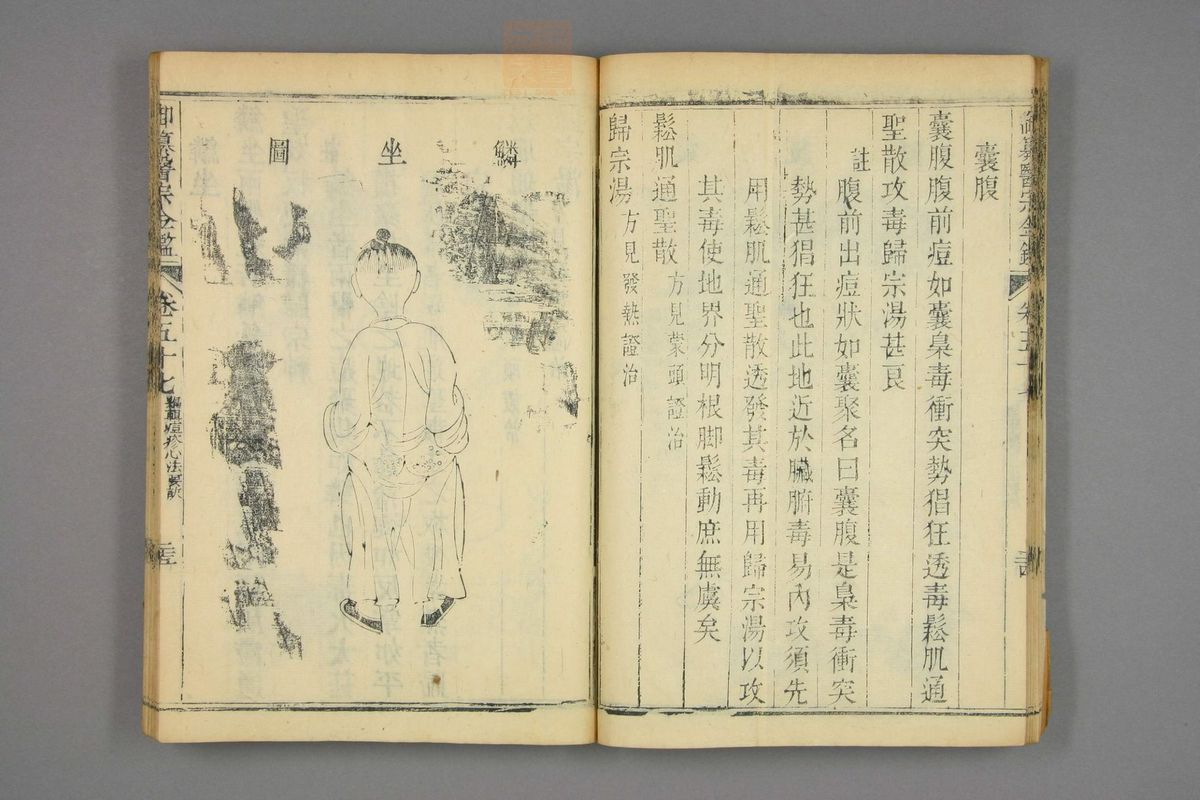 囊腹
囊腹腹前痘如囊梟毒衝突勢猖狂透毒鬆肌通
聖散攻毒歸宗湯甚良
註
腹前出痘狀如囊聚名曰囊腹是梟毒衝突
勢甚猖狂也此地近於臟腑毒易內攻須先
用鬆肌通聖散透發其毒再用歸宗湯以攻
其毒使地界分明根脚鬆動庶無虞矣
鬆肌通聖散方見蒙頭證治
歸宗湯方見發熱證治
鱗坐圖
卷五十七